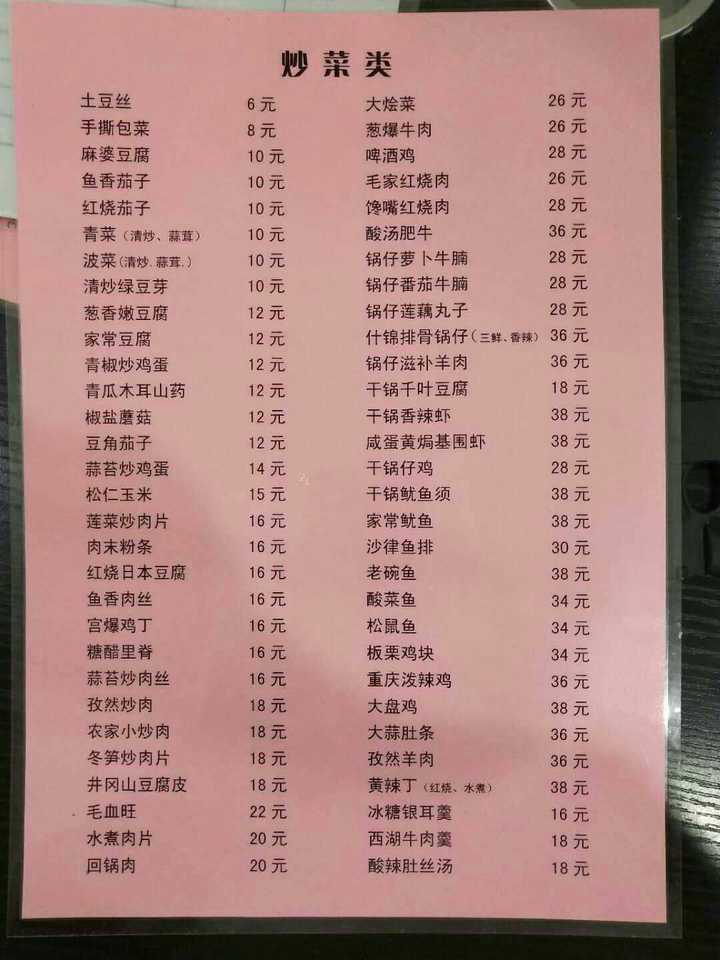 炒菜类
土豆丝 6元
手撕包菜 8元
麻婆豆腐 10元
鱼香茄子 10元
红烧茄子 10元
青菜（清炒、蒜茸） 10元
波菜(清炒.蒜茸.) 10元
清炒绿豆芽 10元
葱香嫩豆腐 12元
家常豆腐 12元
青椒炒鸡蛋 12元
青瓜木耳山药 12元
椒盐蘑菇 12元
豆角茄子 12元
蒜苔炒鸡蛋 14元
松仁玉米 15元
莲菜炒肉片 16元
肉末粉条 16元
红烧日本豆腐 16元
鱼香肉丝 16元
宫爆鸡丁 16元
糖醋里脊 16元
蒜苔炒肉丝 16元
孜然炒肉 18元
农家小炒肉 18元
冬笋炒肉片 18元
井冈山豆腐皮 18元
毛血旺 22元
水煮肉片 20元
回锅肉 20元
大烩菜 26元
葱爆牛肉 26元
啤酒鸡 28元
毛家红烧肉 26元
馋嘴红烧肉 28元
酸汤肥牛 36元
锅仔萝卜牛腩 28元
锅仔番茄牛腩 28元
锅仔莲藕丸子 28元
什锦排骨锅仔（三鲜、香辣） 36元
锅仔滋补羊肉 36元
干锅千叶豆腐 18元
干锅香辣虾 38元
咸蛋黄焗基围虾 38元
干锅仔鸡 28元
干锅鱿鱼须 38元
家常鱿鱼 38元
沙律鱼排 30元
老碗鱼 38元
酸菜鱼 34元
松鼠鱼 34元
板栗鸡块 34元
重庆泼辣鸡 36元
大盘鸡 38元
大蒜肚条 36元
孜然羊肉 36元
黄辣丁（红烧、水煮） 38元
冰糖银耳羹 16元
西湖牛肉羹 18元
酸辣肚丝汤 18元